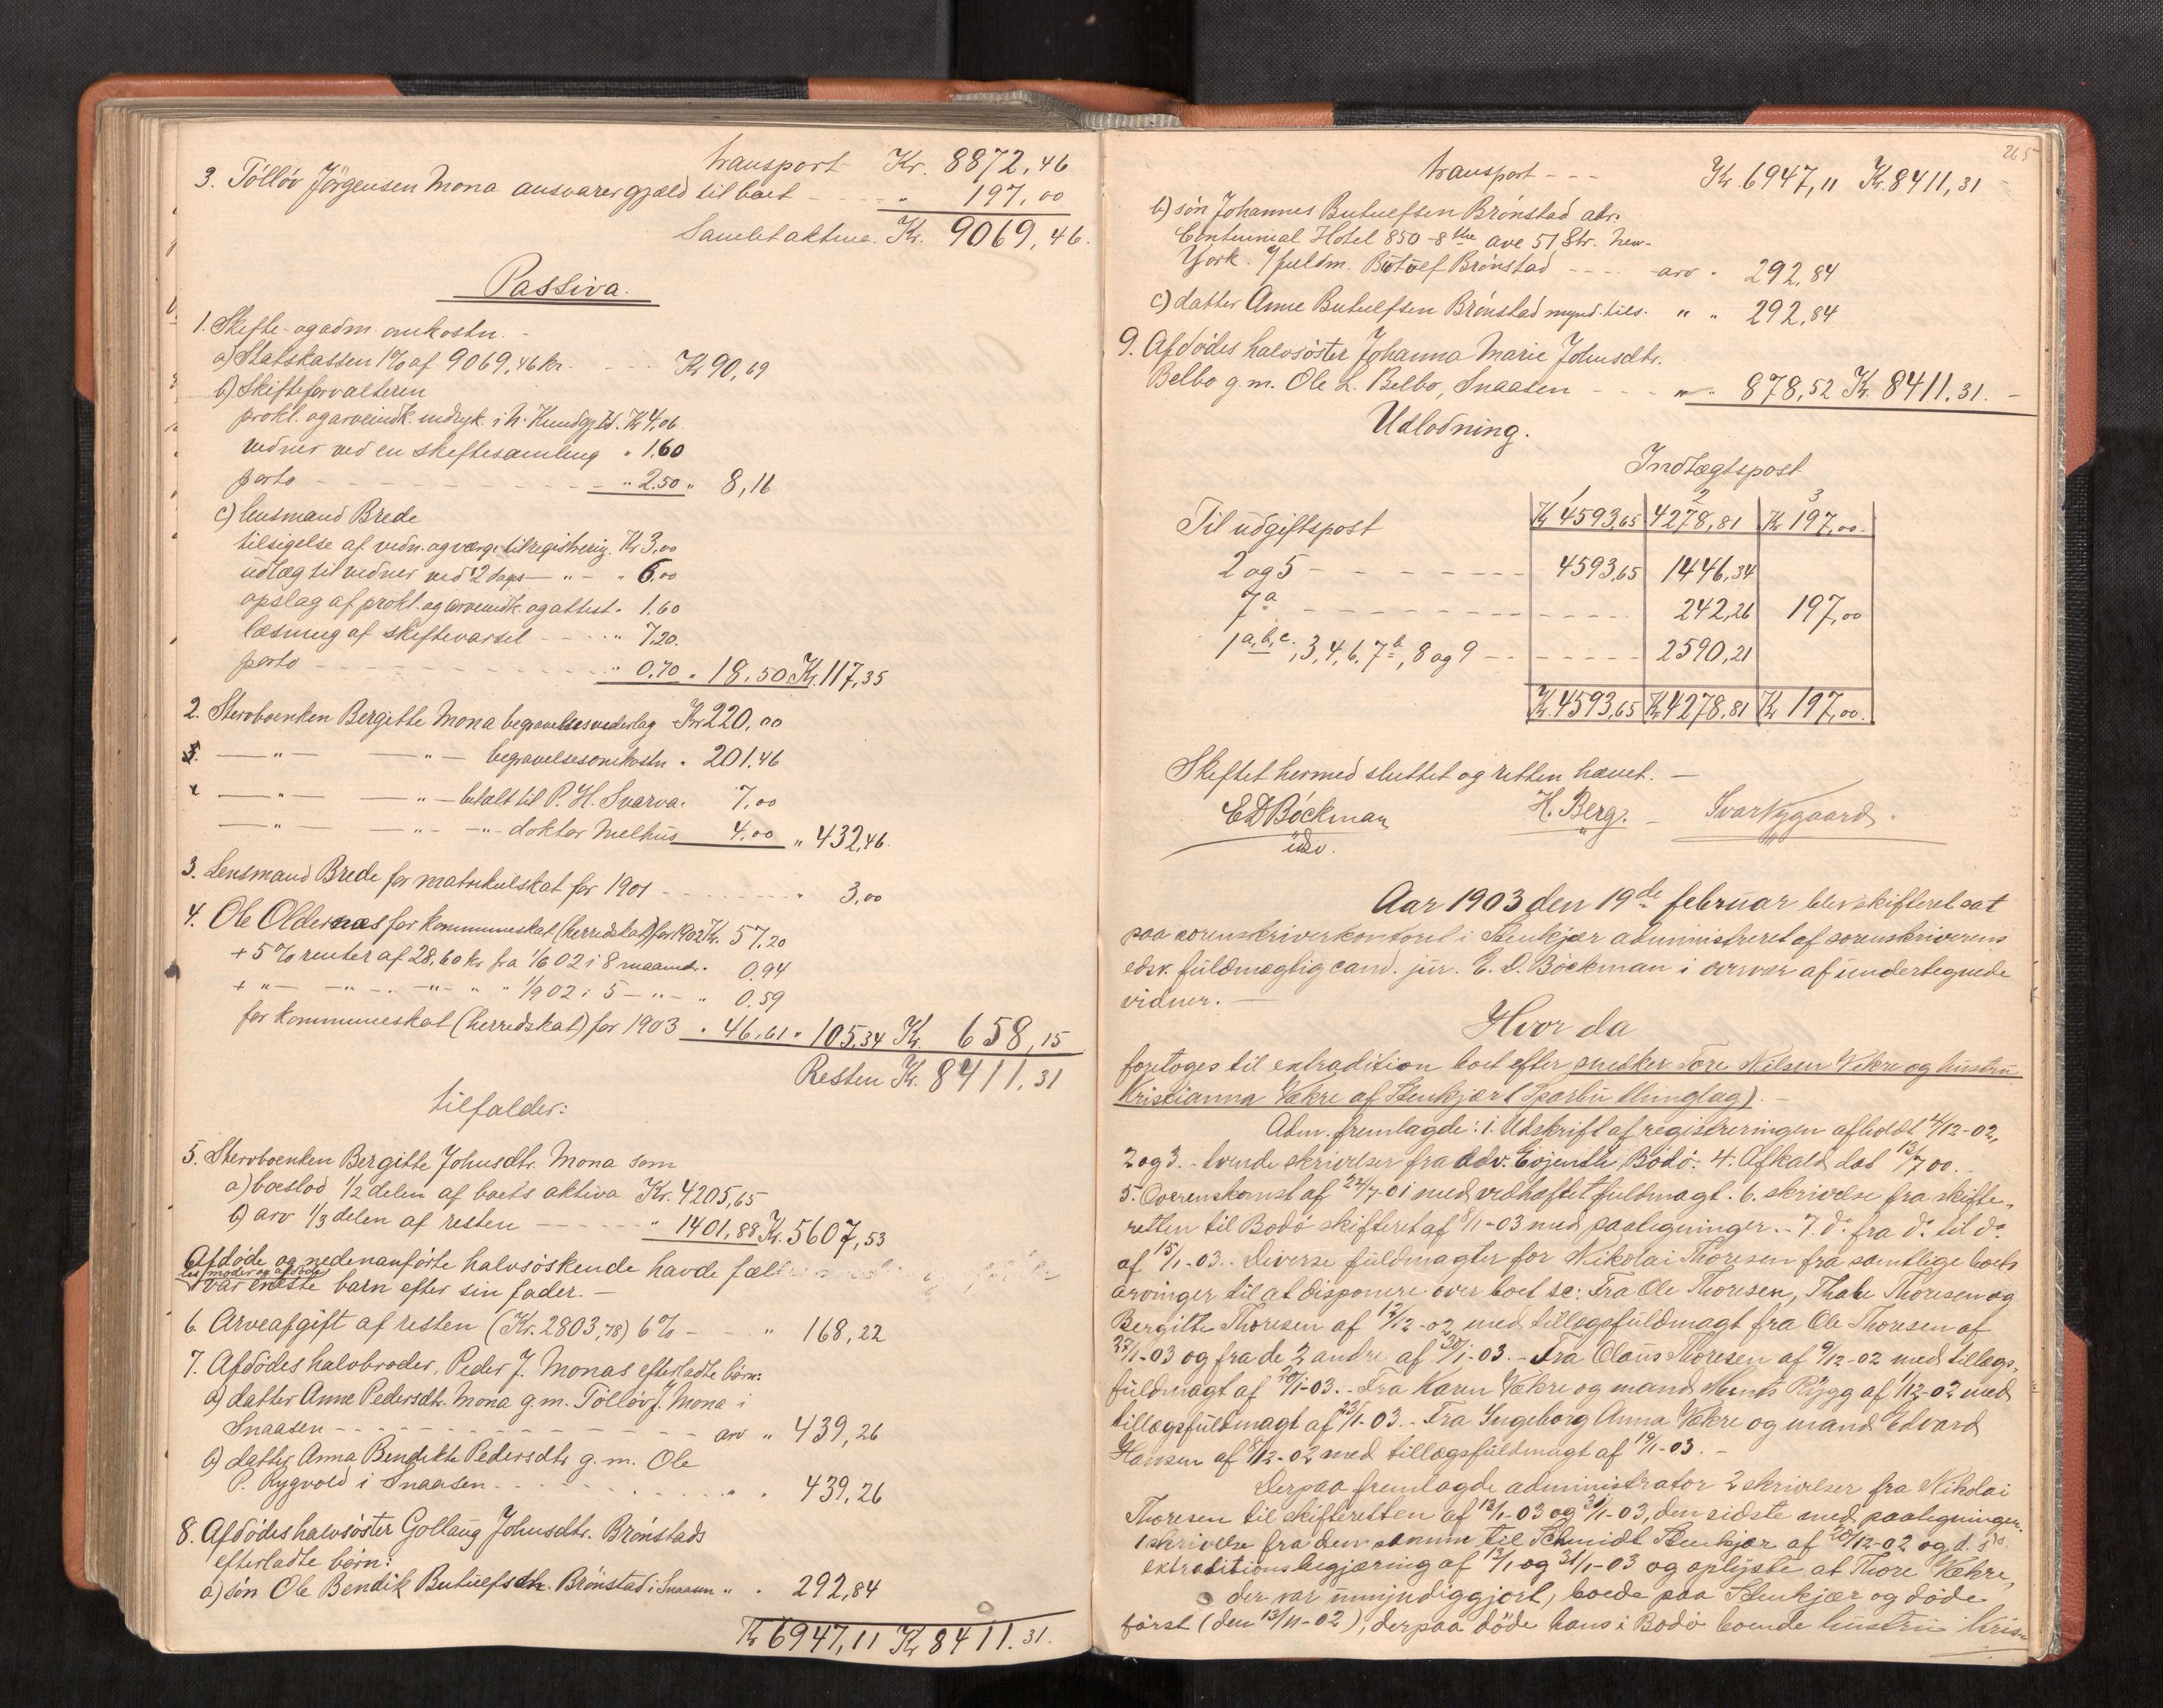 transport Kr. 8872,46
3. Töllöv Jörgensen Mona ansvarer gjæld til boet - - - " 197,00
Samlet aktiva. Kr. 9069,46.
Passiva.
1. Skifte- og adm. omkostn. -
a) Statskassen 1% af 9069,46 kr. - - - Kr 90,69
b) Skifteforvalteren
prokl. og arveindk. indryk. i N. Kundgj.td. Kr 4.06
vidner ved en skiftesamling " 1.60
porto - - - - - - - - - - " 2.50 " 8,16
c) lensmand Brede
tilsigelse af vidn. og værge til registrering. Kr 3,00
udlæg til vidner ved 2 dags - " - " 6,00
opslag af prokl. og arveindk. og attest. " 1.60
læsning af skiftevarsel - - - - " 7,20.
porto - - - - - - - - - - " 0,70 " 18,50 Kr. 117,35
2. Stervboenken Bergitte Mona begravelsesvederlag Kr 220,00
- " - - " - begravelsesomkostn. " 201,46
- " - - " - betalt til P. H. Svarva. 7,00
- " - - " - " - doktor Melhus 4,00 " 432,46.
3. Lensmand Brede for matrikulskat for 1901 - - - - - - - " 3,00
4. Ole Oldernæs for kommuneskat (herredskat) for 1902 Kr. 57,20
+ 5% renter af 28,60 kr. fra 1/6 02 i 8 maaned. " 0.94
+ " - - " - " - " - " " 1/9 02 i 5 - " - " 0.59
for kommuneskat (herredskat) for 1903 " 46,61 " 105,34 Kr. 658,15
Resten Kr. 8411,31
tilfalder:
5. Stervboenken Bergitte Johnsdtr. Mona som
a) boeslod 1/2 delen af boets aktiva Kr. 4205,65
b) arv 1/3 delen af resten - - - - - " 1401,88 Kr. 5607,53
Afdøde og nedenanførte halvsøskende havde fælles moder og afdøde
var eneste barn efter sin fader. -
6. Arveafgift af resten (Kr. 2803,78) 6% - - - " 168,22
7. Afdödes halvbroder, Peder J. Monas efterladte börn:
a) datter Anne Pedersdtr. Mona g.m. Töllöv J. Mona i
Snaasen - - - - - - - - - - - - - arv " 439,26
b) datter Anna Bendikte Pedersdtr g. m. Ole
P. Rygvold i Snaasen - - - - - - - - " " 439,26
8. Afdödes halvsöster Gollaug Johnsdtr. Brönstads
efterladte börn:
a) sön Ole Bendik Butuelfsen Brönstad i Snaasen " " 292,84
Kr 6947,11 Kr 8411.31.
265
transport - - - Kr. 6947,11 Kr. 8411,31 -
b) sön Johannes Butuelfsen Brönstad adr.
Centennial Hotel 850 - 8the ave 51 Str. New-
York. v/ fuldm. Botolf Brönstad - - - - arv " 292,84
c) datter Anne Butuelfsen Brönstad mynd. tils. " " 292,84
9. Afdödes halvsöster Johanna Marie Johnsdtr.
Belbo g.m. Ole L. Belbo, Snaasen - - - " " 878,52 Kr. 8411.31. -
Udlodning.
Indtægtspost
1 2 3
Til udgiftspost Kr 4593,65 4278,81 Kr 197,00.
2 og 5 - - - - - - - 4593,65 1446,34
7a - - - - - - - - - - - - 242,26 197,00
1 a, b, c., 3, 4, 6, 7b, 8 og 9 - - - - - - - 2590,21
Kr. 4593,65 Kr 4278,81 Kr 197,00.
Skiftet hermed sluttet og retten hævet. -
E D Böckman H. Berg. Ivar Nygaard.
edsv.
Aar 1903 den 19de februar blev skifteret sat
paa sorenskriverkontoret i Stenkjær administreret af sorenskriverens
edsv. fuldmægtig cand. jur. E. D. Böckman i overvær af undertegnede
vidner. -
Hvor da
foretoges til extradition boet efter snedker Tore Nilsen Vekre og hustru
Kristianna Vekre af Stenkjær (Sparbu thinglag). -
Adm. fremlagde: 1. Udskrift af registreringen afholdt 4/12-02,
2 og 3. - tvende skrivelser fra adv. Evjenth, Bodö. 4. Afkald dat 13/7 00. -
5. Overenskomst af 24/7-01 med vedhæftet fuldmagt. 6. skrivelse fra skifte-
retten til Bodö skifteret af 8/1-03 med paategninger. - 7. do. fra do. til do.
af 15/1-03. - Diverse fuldmagter for Nikolai Thoresen fra samtlige boets
arvinger til at disponere over boet sc: Fra Ole Thoresen, Thale Thoresen og
Bergitte Thoresen af 12/12-02 med tillægsfuldmagt fra Ole Thoresen af
27/1-03 og fra de 2 andre af 30/1-03. - Fra Olaus Thoresen af 9/12-02 med tillægs-
fuldmagt af 20/1-03. - Fra Karen Vekre og mand Rygg af 1/12-02 med
tillægsfuldmagt af 23/1-03. - Fra Ingeborg Anna Vekre og mand Edvard
Hansen af 8/12-02 med tillægsfuldmagt af 19/1-03. -
Derpaa fremlagde administrator 2 skrivelser fra Nikolai
Thoresen til skifteretten af 13/1-03 og 31/1-03, den sidste med paategninger.
1 skrivelse fra den samme til Schmidt Stenkjær af 20/12-02 og d. sds.
extraditionsbegjæring af 13/1 og 31/1-03 og oplyste at Thore Vekre,
der var umyndiggjort, boede paa Stenkjær og döde
först (den 13/11-02), derpaa döde hans i Bodö boende hustru Kris-